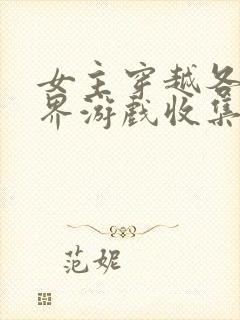 女主穿越各
界游戏收集
范妮